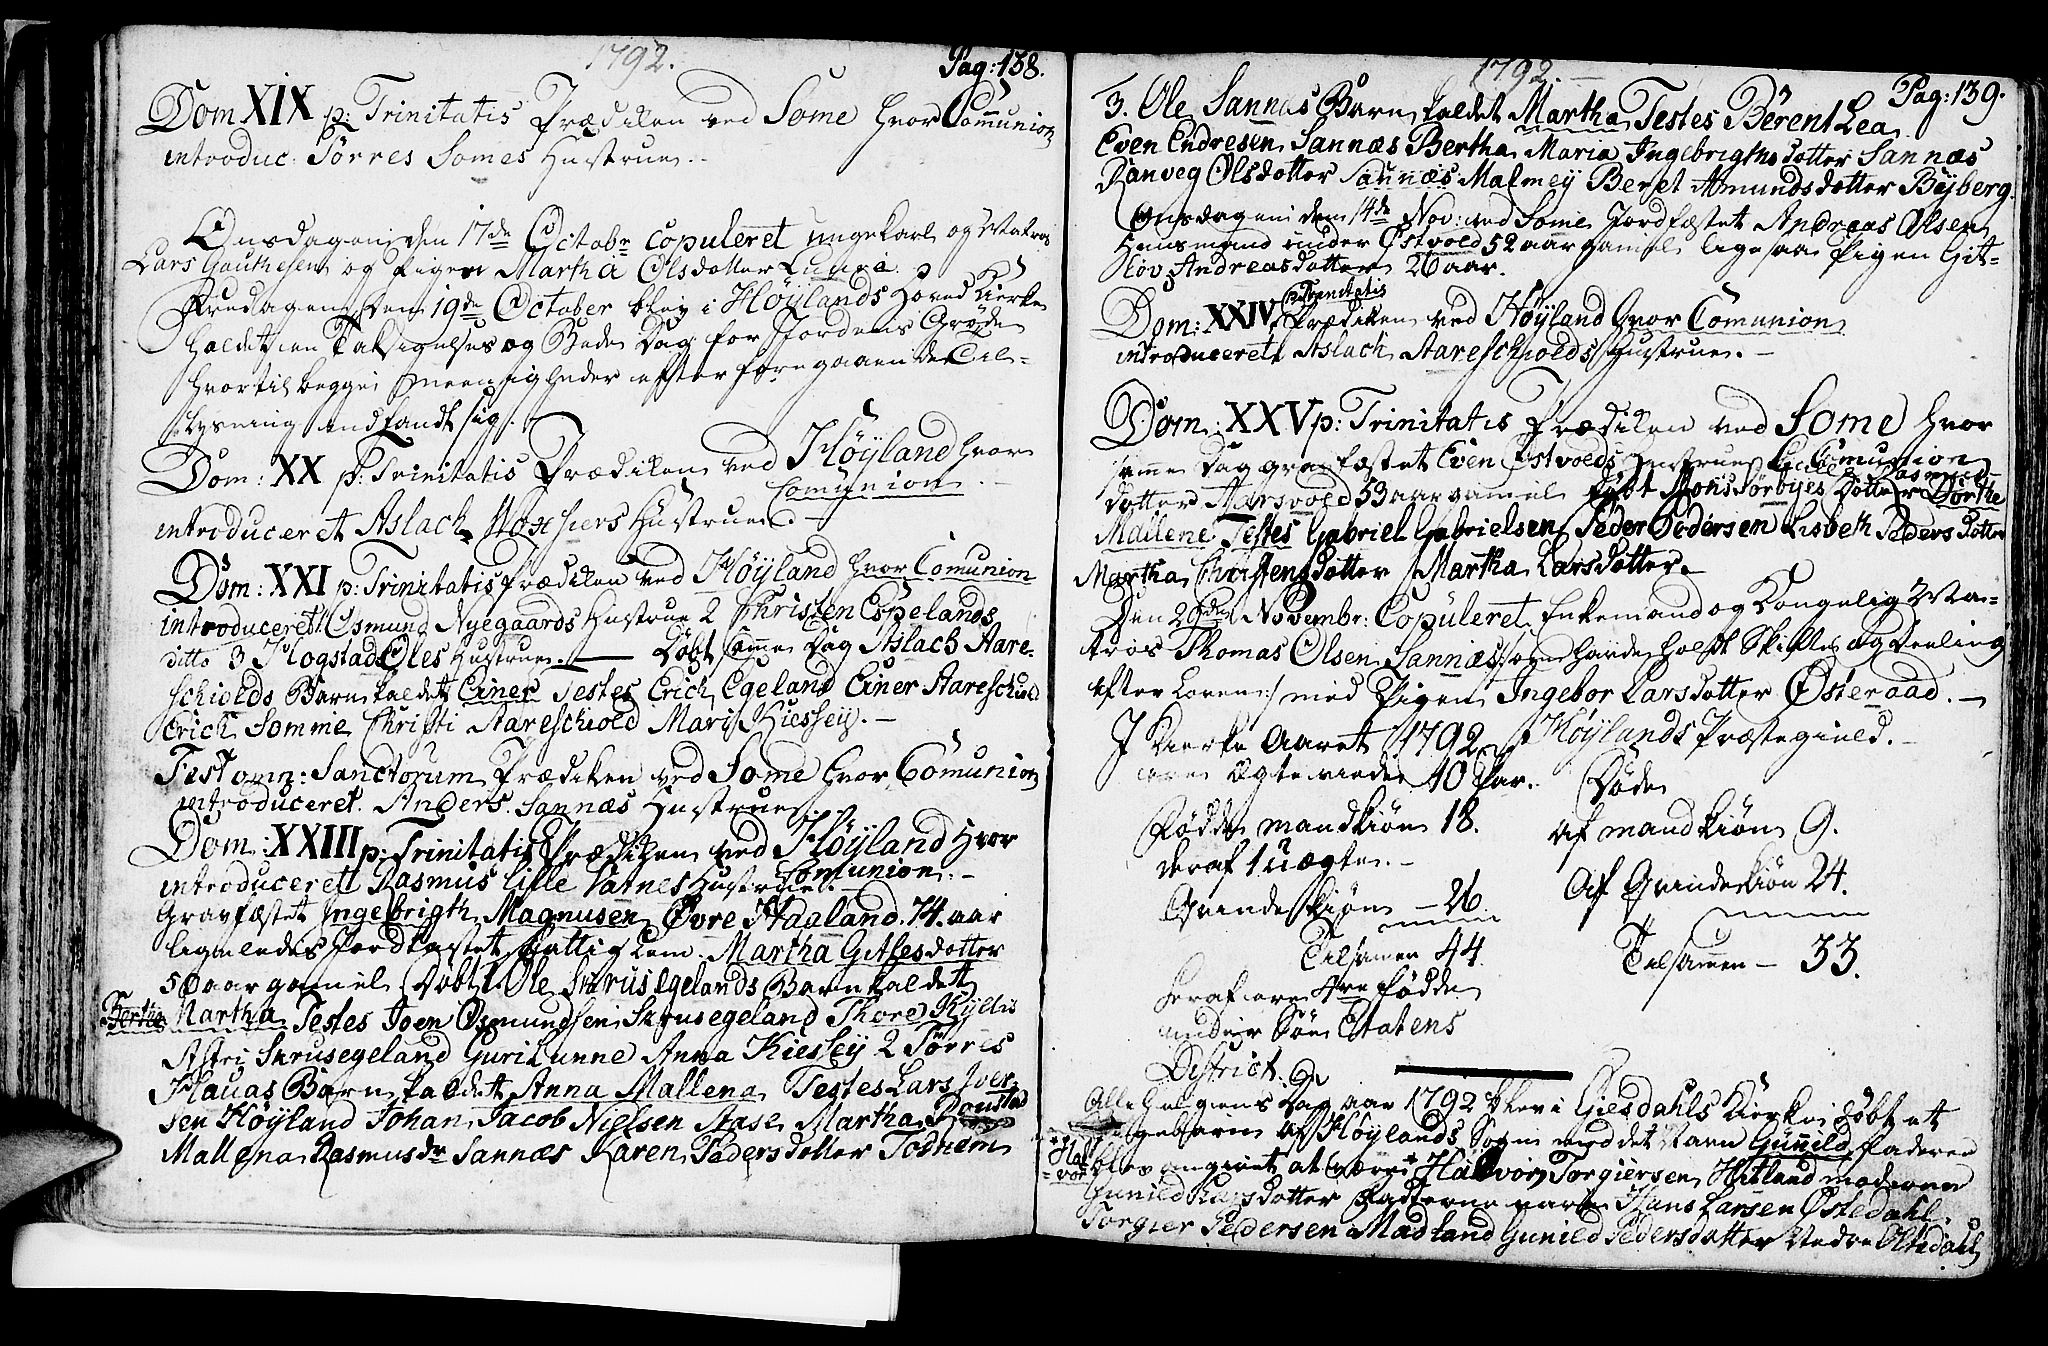 1792.
Pag: 138.
Dom XIX p: Trinitatis Prædiken ved Some hvor Communion
introduc: Tørres Somes Hustrue.
Onsdagen den 17de Octobr copuleret ungekarl og Matros
Lars Gauthesen og Pigen Martha Olsdotter Lunne.
Fredagen den 19de October blev i Høylands Hoved Kierke
holdet en Taksigelses og Bede Dag for Jordens Grøde
hvortil begge Meenigheder efter foregaaende Til-
lysning indfandt sig.
Dom: XX p: Trinitatis Prædiken ved Høyland hvor
Comunion
introduceret Aslach Hustrue.
Dom: XXI p: Trinitatis Prædiken ved Høyland hvor Comunion
introduceret 1 Osmund Nyegaards Hustrue 2 Christen Opelands
ditto 3 Hogstad Oles Hustrue. Døbt samme Dag Aslach Aare-
schiolds Barn kaldet Einer Testes Erich Egeland Einer Aareschiold
Erich Somme Christi Aareschiold Mari Kiessey.
Fest omn: Sanctorum Prædiken ved Some hvor Comunion
introduceret Anders Sannæs Hustrue.
Dom: XXIII p: Trinitatis Prædiken ved Høyland hvor
Comunion
introduceret Rasmus Lille Vatnes Hustrue.
Gravfæstet Ingebrigth Magnusen Øvre Haaland 74. aar
ligeledes Jordkastet fattig Lem Martha Gitlesdotter
50 aar gamel Døbt 1. Ole Skrusegelands Barn kaldet
Bertha
Martha Testes Joen Osmundsen Skrusegeland Thore
Astri Skrusegeland Guri Lunne Anna Kiessey 2 Tørres
Hauas Barn kaldet Anna Mallena Testes Lars Iver-
sen Høyland Johan Jacob Nielsen Aase Martha
Mallena Rasmusdr Sannæs Karen Pedersdotter Todnem
1792.
Pag: 139.
3. Ole Sannæs Barn kaldet Martha Testes Berent Lea
Even Endresen Sannæs Bertha Maria Ingebrigthsdotter Sannæs
Ranveg Olsdotter Sannæs Malmey Beret Amundsdotter Byberg.
Onsdagen den 14de Nov: ved Some Jordfæstet Andreas Olsen
Huusmand under Østvold 52 aar gamel ligesaa Pigen Git-
løv Andreasdotter 26 aar.
Dom: XXIV p: Trinitatis Prædiken ved Høyland hvor Comunion
introduceret Aslach Aareschiolds Hustrue.
Dom: XXV p: Trinitatis Prædiken ved Some hvor
Comunion
samme Dag gravfæstet Even Østvolds Hustrue Rasmus-
dotter Aarsvold 53 aar gamel Døbt Mons Sørbyes Dotter Dorthe
Mallene Testes Gabriel Gabrielsen Peder Pedersen Lisbeth Pedersdotter
Martha Christensdotter Martha Larsdotter.
Den 29de Novembr: Copuleret Enkemand og Kongelig Ma-
tros Thomas Olsen Sannæs /: som havde holdt Skifte og Deeling
efter Loven :/ med Pigen Ingebor Larsdotter Østeraad.
I Kierke Aaret 1792 i Høylands Præstegield.
ere Ægteviede 10 Par.
Døde
Fødde mandkiøn 18.
af mandkiøn 9.
deraf 1 uægte.
Af Qvindekiøn 24.
Qvindekiøn 26
Tilsamen 44.
Tilsammen 33.
heraf ere 4re fødde
under Søe Etatens
District.
Alle helgens Dag aar 1792 blev i Giesdahls Kierke døbt et
Pigebarn af Høylands Sogn med det Navn Gunild Faderen
Hal-
vor
blev angivet at være Halvor Torgiersen Hetland moderen
Gunild Larsdotter Fadderne vare Hans Larsen Østedahl
Torgier Pedersen Madland Gunild Pedersdotter Nedre Oltedahl